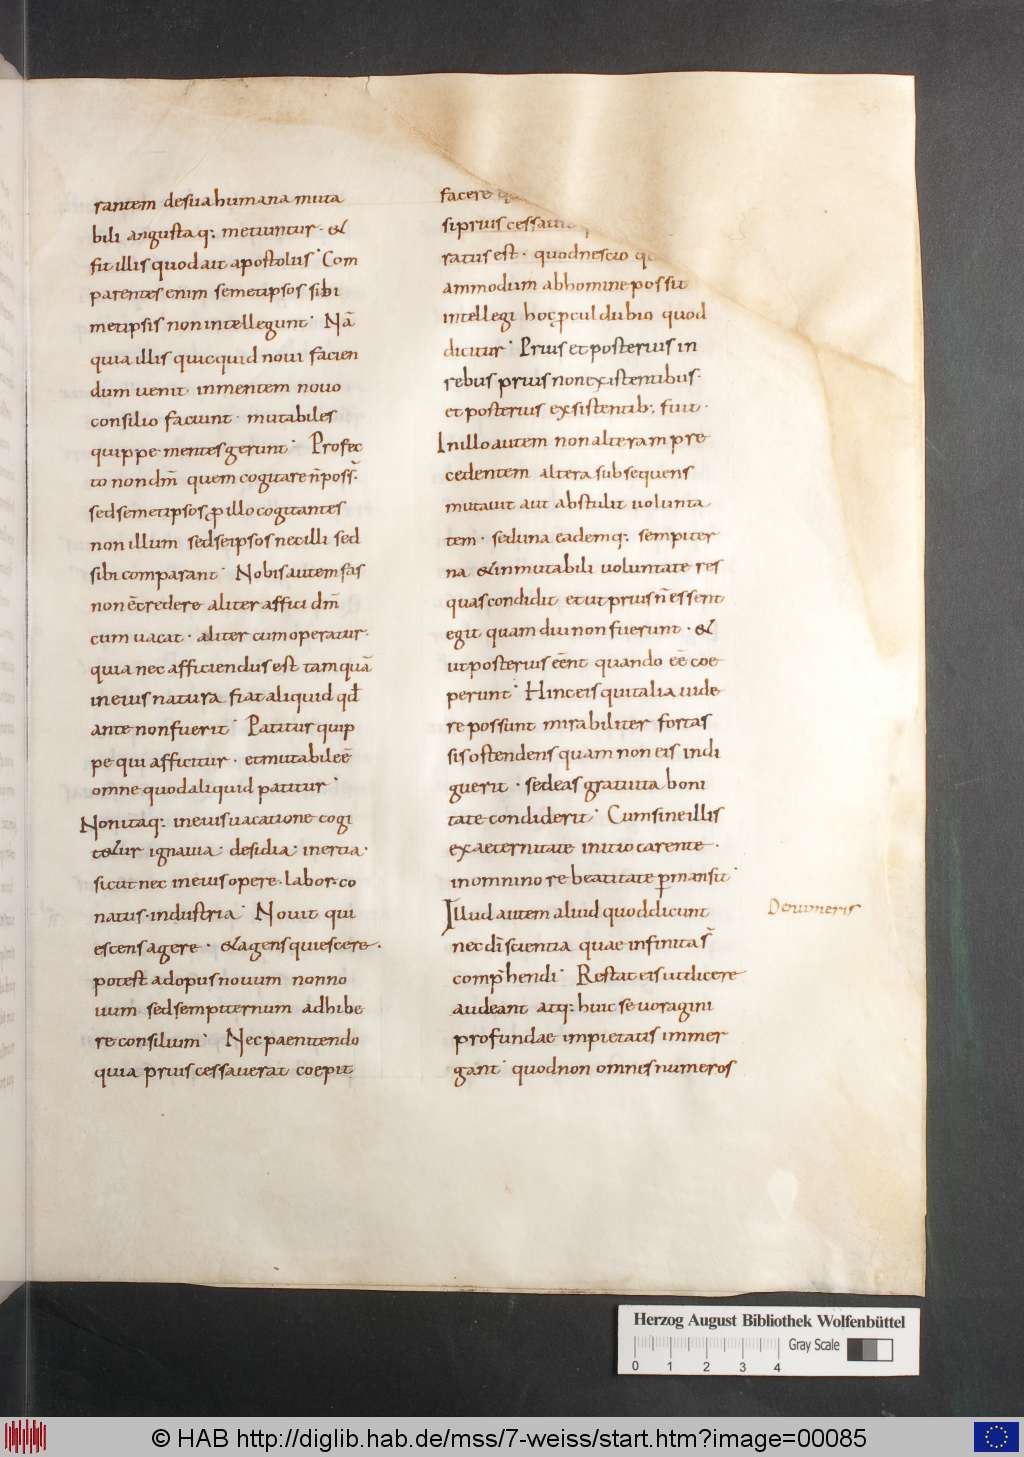 rantem desua humana muta
bili angustaq; metiuntur · &
fit illis quod ait apostolus · Com
parentes enim semetipsos sibi
metipsis non intellegunt · Nā
quia illis quicquid noui facien
dum uenit in mentem nouo
consilio faciunt · mutabiles
quippe mentes gerunt · Profec
to non dm̄ quem cogitare n̄ poss̄·
sed semetipsos ꝓ illo cogitantes
non illum sed seipsos nec illi sed
sibi comparant · Nobis autem fas
non ē credere aliter affici dm̄
cum uacat · aliter cum operatur·
quia nec afficiendus est tamquā
in eius natura fiat aliquid qđ
ante non fuerit · Patitur quip
pe qui afficitur · et mutabile ē
omne quod aliquid patitur ·
Non itaq; in eius uacatione cogi
tetur ignauia; desidia; inertia·
sicut nec in eius opere · labor · co
natus · industria · Nouit qui
escens agere · & agens quiescere ·
potest ad opus nouum non no
uum sed sempiternum adhibe
re consilium · Nec paenitendo
quia prius cessauerat coepit
facere
si prius cessaui
ratus est · quod nescio
ammodum ab homine possit
intellegi hoc p̱cul dubio quod
dicitur · Prius et posterius in
rebus prius non existentibus·
et posterius exsistentib; fuit·
In illo autem non alteram pre
cedentem altera subsequens
mutauit aut abstulit uolunta
tem · sed una eademq; sempiter
na & inmutabili uoluntate res
quas condidit et ut prius n̄ essent
egit quamdiu non fuerunt · &
ut posterius eēnt quando eē coe
perunt · Hinc eis qui talia uide
re possunt mirabiliter fortas
sis ostendens quam non eis indi
guerit · sed eas gratuita boni
tate condiderit · Cum sine illis
ex aeternitate initio carente ·
in omnino re beatitate p̱mansit·
Illud autem aliud quod dicunt
nec dī scientia quae infinita s̄
comp̄hendi · Restat eis ut dicere
audeant atq; huic se uoragini
profundae impietatis immer
gant · quod non omnes numeros
De numeris
Herzog August Bibliothek Wolfenbüttel
Gray Scale
0 1 2 3 4
© HAB http://diglib.hab.de/mss/7-weiss/start.htm?image=00085